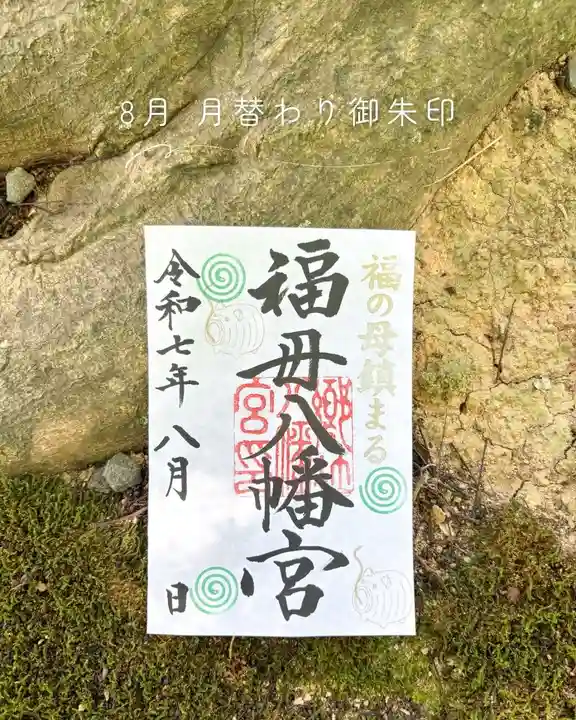 8月 月替わり御朱印
福の母鎮まる
福母八幡宮
令和七年 八月
日